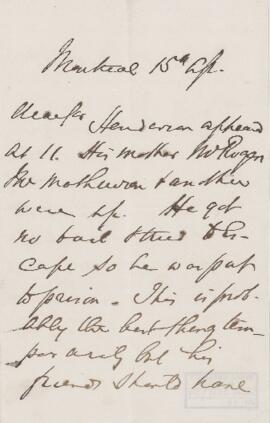 Montreal 15th Ap.
Henderson appeared
at 11. His mother Mr Rogers
Mr Mathewson & another
were up. He got
no bail
cape so he was put
to prison. This is prob-
ably the best thing tem-
porarily but his
friends should have